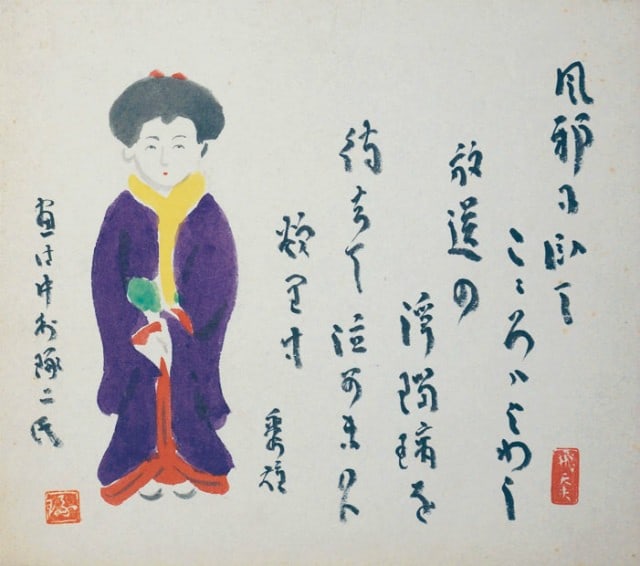 風邪に臥して
こころはよわし
放送の
浄瑠璃を
待ちて
泣かまく
欲りす
秀雄
画は中村琢二氏